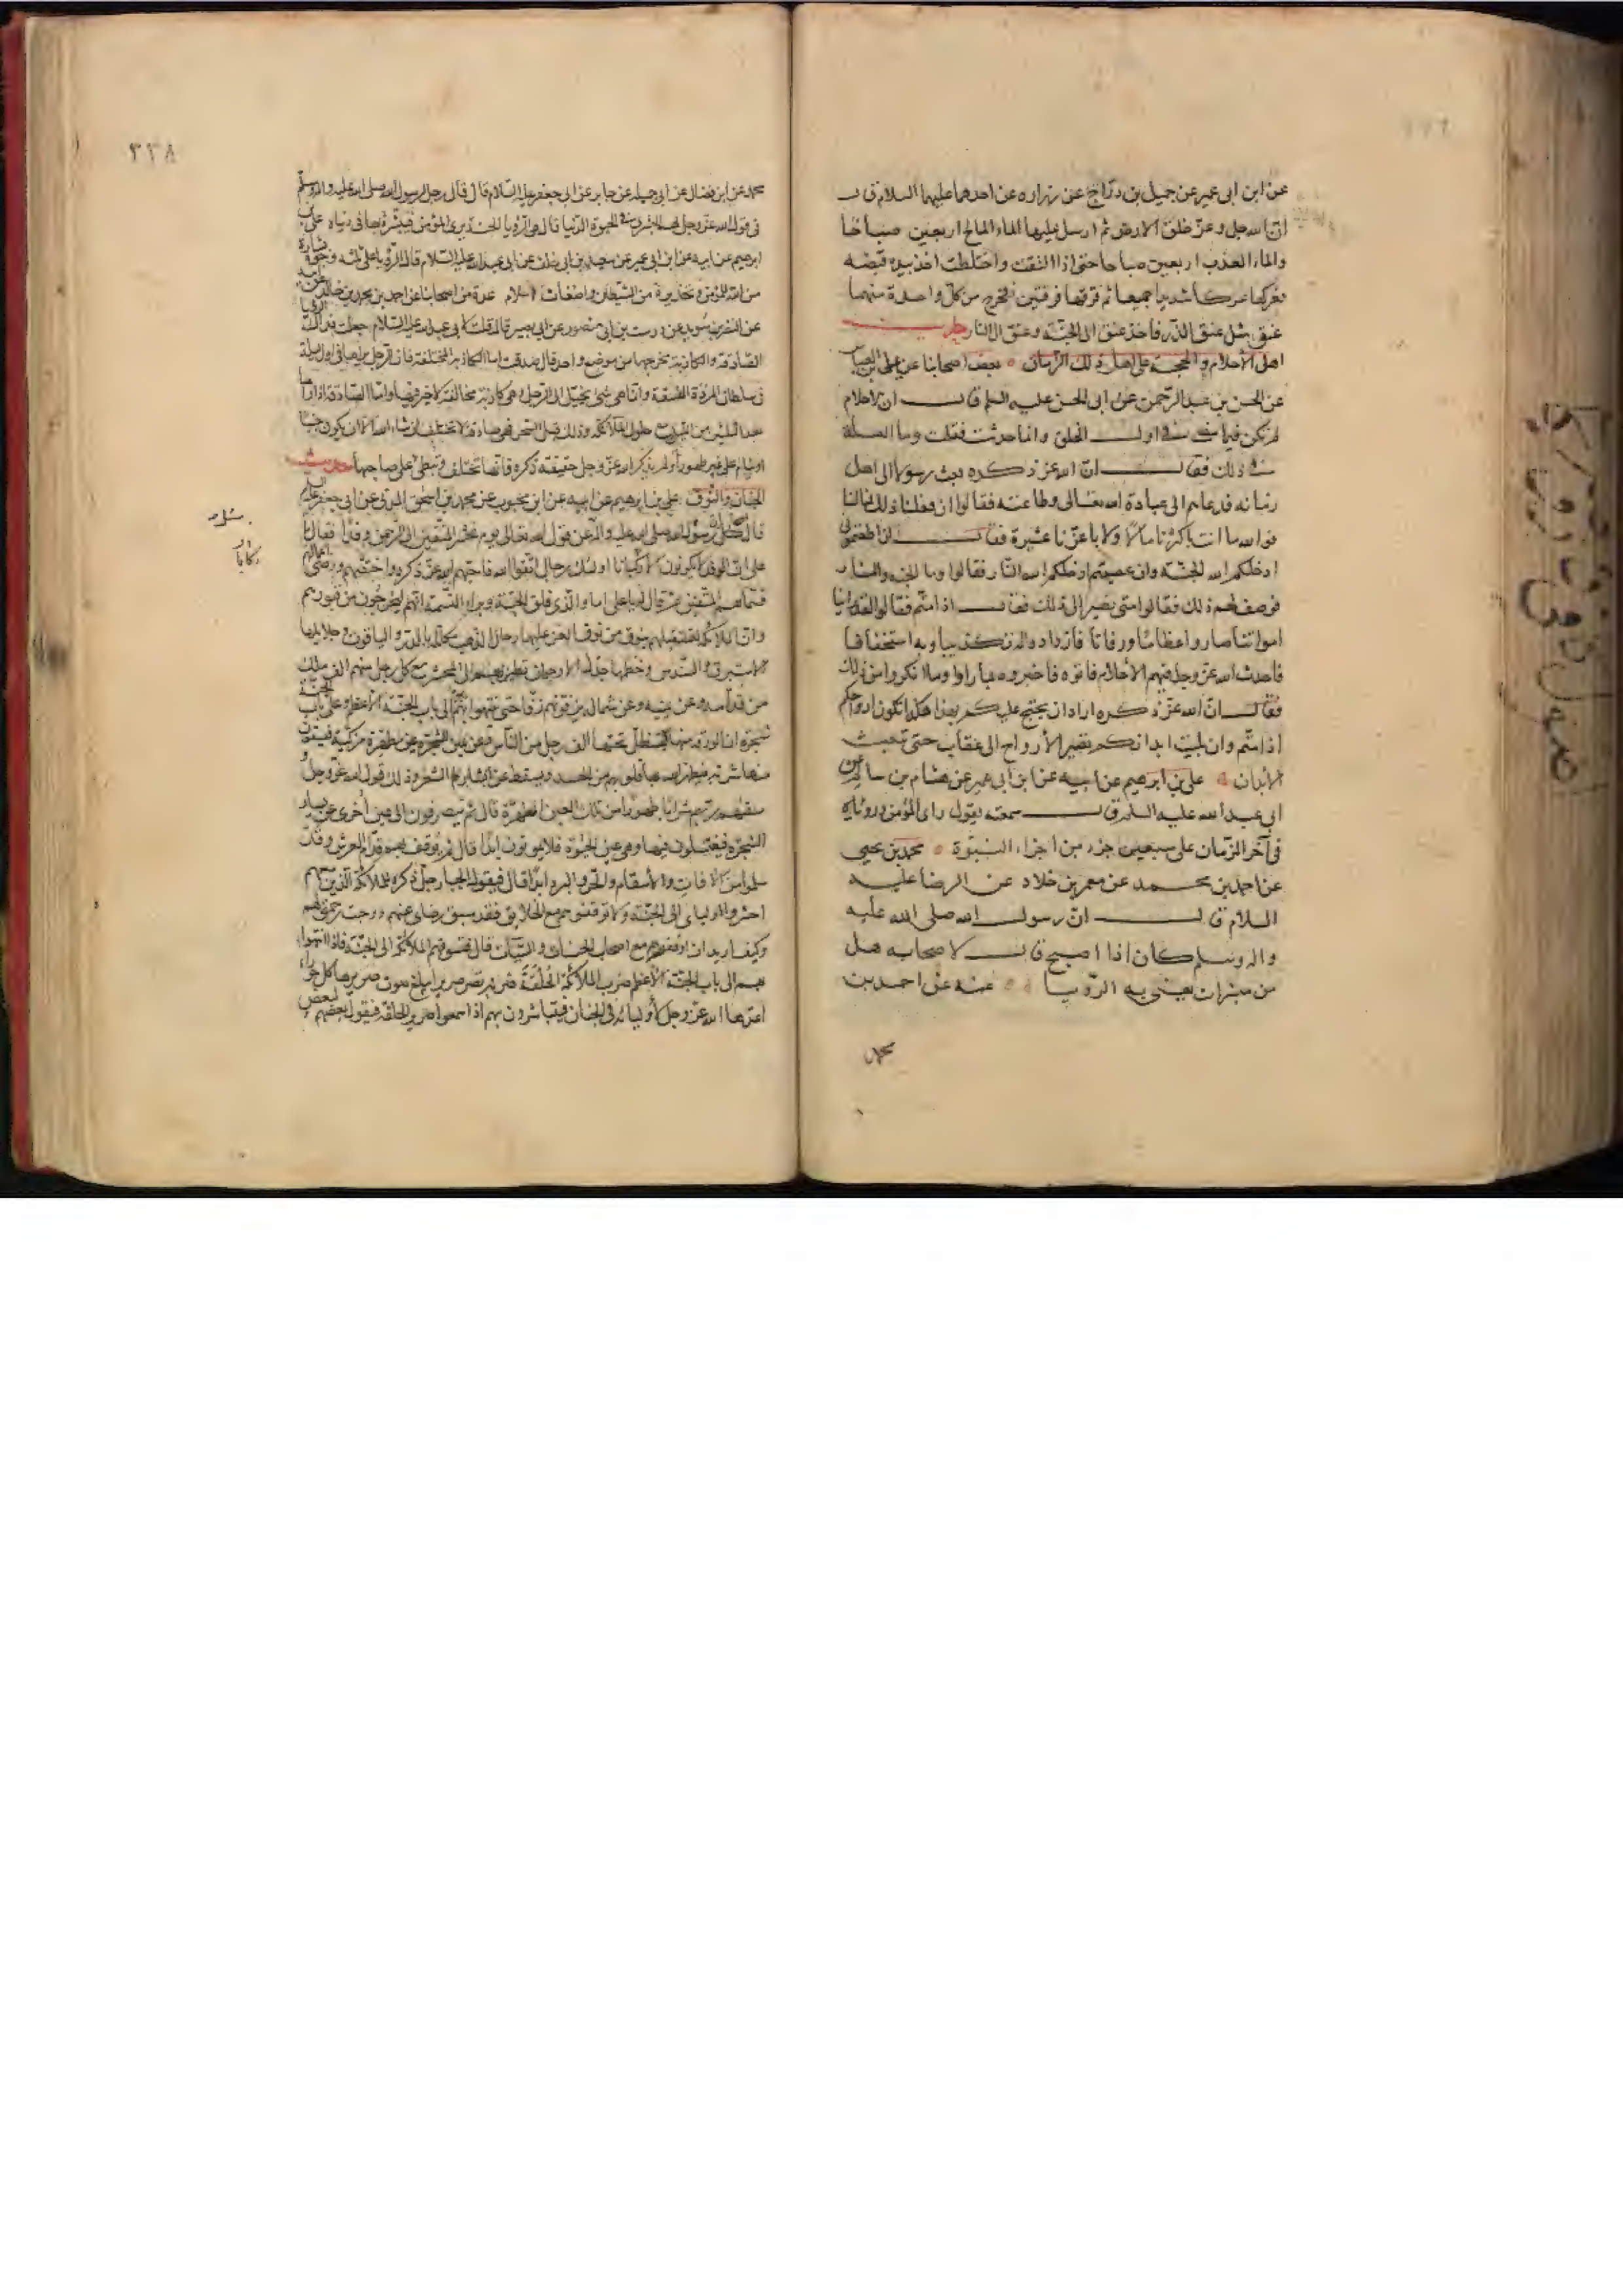 عن ابن ابى عمير عن جميل بن درّاج عن زراره عن احدهما عليهما السلام قال
انّ الله جل وعزّ خلق الارض ثم ارسل عليها الماء المالح اربعين صباحًا
والماء العذب اربعين صباحا حتى اذا التقت واختلطت اخذ بيده قبضه
فعركها عركا شديدا جميعا ثم فرقها فرقتين فخرج من كلّ واحدة منهما
عنق مثل عنق الذر فاخذ عنق الى الجنّة وعنق الى النار
اهل الأحلام والحجة على اهل ذلك الزمان بعض اصحابنا عن على بن العباس
عن الحسن بن عبد الرّحمن عن ابى الحسن عليه السلم قال ان الاحلام
لم تكن فيما مضى فى اول الخلق وانما حدثت فقلت وما العلة
فى ذلك فقال انّ الله عزّ ذكره بعث رسولا الى اهل
زمانه فدعاهم الى عبادة الله تعالى وطاعته فقالوا ان فعلنا ذلك فمالنا
فوالله ما انت باكثرنا مالاً ولا باعزّنا عشيرة فقال ان اطعتمونى
ادخلكم الله الجنّة وان عصيتم ادخلكم الله النّار فقالوا وما الجنه والنار
فوصف لهم ذلك فقالوا متى نصير الى ذلك فقال اذا متّم فقالوا لقد راينا
امواتنا صاروا عظامًا ورفاتا فازدادوا له تكذيبا وبه استخفافا
فاحدث الله عزّ وجل فيهم الأحلام فاتوه فاخبروه بما راوا وما انكروا من ذلك
فقال انّ الله عزّ ذكره اراد ان يحتج عليكم بهذا هكذا تكون ارواحكم
اذا متّم وان بليت ابدانكم تصير الأرواح الى عقاب حتى تبعث
الأبدان على بن ابرهيم عن ابيه عن ابن ابى عمير عن هشام بن سالم عن
ابى عبد الله عليه السلم قال سمعته يقول راى المؤمن ورؤياه
فى آخر الزّمان على سبعين جزء من اجزاء النبوّة محمد بن يحيى
عن احمد بن محمد عن معمر بن خلاد عن الرضا عليه
السلام قال انّ رسول الله صلى الله عليه
واله وسلم كان اذا اصبح قال لاصحابه هل
من مبشرات يعنى به الرّويا عنه عن احمد بن
محمد
٣٣٨
محمد عن ابن فضال عن ابى جميله عن جابر عن ابى جعفر عليه السّلام قال قال رجل لرسول الله صلى الله عليه واله وسلم
فى قول الله عزّ وجل لهم البشرى فى الحيوة الدّنيا قال هى الرّويا الحسنة يرى المؤمن فيبشر بها فى دنياه على بن
ابرهيم عن ابيه عن ابن ابى عمير عن سعد بن ابى خلف عن ابى عبد الله عليه السّلام قال الرّؤيا على ثلثه وجوه بشارة
من الله للمؤمن وتحذير من الشيطان واضغاث احلام عدة من اصحابنا عن احمد بن محمد بن خالد عن ابيه
عن النضر بن سويد عن درست بن ابى منصور عن ابى بصير قال قلت لابى عبد الله عليه السّلام جعلت فداك الرويا
الصّادقه والكاذبة مخرجهما من موضع واحد قال صدقت اما الكاذبة المختلفة فان الرجل يراها فى اول ليلة
فى سلطان المردة الفسقة وانّما هى شئ يخيّل الى الرّجل وهى كاذبة مخالفة لا خير فيها وامّا الصّادقة اذا راها
بعد الثلثين من الليل مع حلول الملائكة وذلك قبل السّحر فهى صادقة لا تختلف ان شاء الله الّا ان يكون جنبًا
او ينام على غير طهور او لم يذكر الله عزّ وجل حقيقة ذكره فانّها تختلف وتبطى على صاحبها حديث
الجنان والنّوق على بن ابرهيم عن ابيه عن ابن محبوب عن محمد بن اسحق المدنى عن ابى جعفر عليه السلم
قال سئل رسول الله صلى الله عليه واله عن قول الله تعالى يوم نحشر المتّقين الى الرحمن وفدًا فقال يا
على انّ الوفد لا يكونون الّا ركبانا اولئك رجال اتّقوا الله فاحبّهم الله عزّ ذكره واختصّهم ورضى اعمالهم
فسمّاهم المتّقين ثمّ قال له يا على اما والّذى فلق الحبّة وبرا النّسمة انّهم ليخرجون من قبورهم
وانّ الملائكة لتستقبلهم بنوق من نوق العزّ عليها رحال الذّهب مكلّلة بالدّر والياقوت وجلايلها
الاستبرق والسّندس وخطمها جدل الارجوان تطير بهم الى المحشر مع كلّ رجل منهم الف ملك
من قدّامه وعن يمينه وعن شماله يزفّونهم زفّا حتى ينتهوا بهم الى باب الجنّة الأعظم وعلى باب الجنّة
شجرة ان الورقه منها ليستظلّ تحتها الف رجل من النّاس وعن يمين الشّجرة عين مطهّرة مزكّية فيسقون
منها شربة فيطهّر الله بها قلوبهم من الحسد ويسقط عن ابشارهم الشّعر وذلك قول الله عزّ وجلّ و
سقيهم ربّهم شرابًا طهورًا من تلك العين المطهّرة قال ثم ينصرفون الى عين اخرى عن يسار
الشّجرة فيغتسلون فيها وهى عين الحيوة فلا يموتون ابدًا قال ثمّ يوقف بهم قدّام العرش وقد
سلموا من الآفات والأسقام والحرّ والبرد ابدًا قال فيقول الجبار جلّ ذكره للملائكة الّذين معهم
احشروا اوليائى الى الجنّة ولا توقفوهم مع الخلايق فقد سبق رضاى عنهم ووجبت رحمتى لهم
وكيف اريد ان اوقفهم مع اصحاب الحسنات والسّيّئات قال فتسوقهم الملائكة الى الجنّة فاذا انتهوا
بهم الى باب الجنّة الأعظم ضرب الملائكة الحلقة ضربة تصرّ صريرا يبلغ صوت صريرها كل حوراء
اعدّها الله عزّ وجل لأوليائه فى الجنان فيتباشرون بهم اذا سمعوا صرير الحلقة فيقول بعضهم لبعض